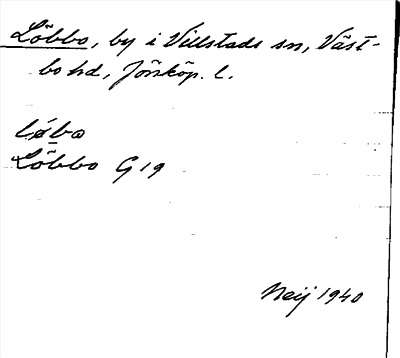 Löbbo, by i Villstads sn, Väst-
bo hd, Jönköp. l.
løbo
Löbbo G 19
Neij 1940